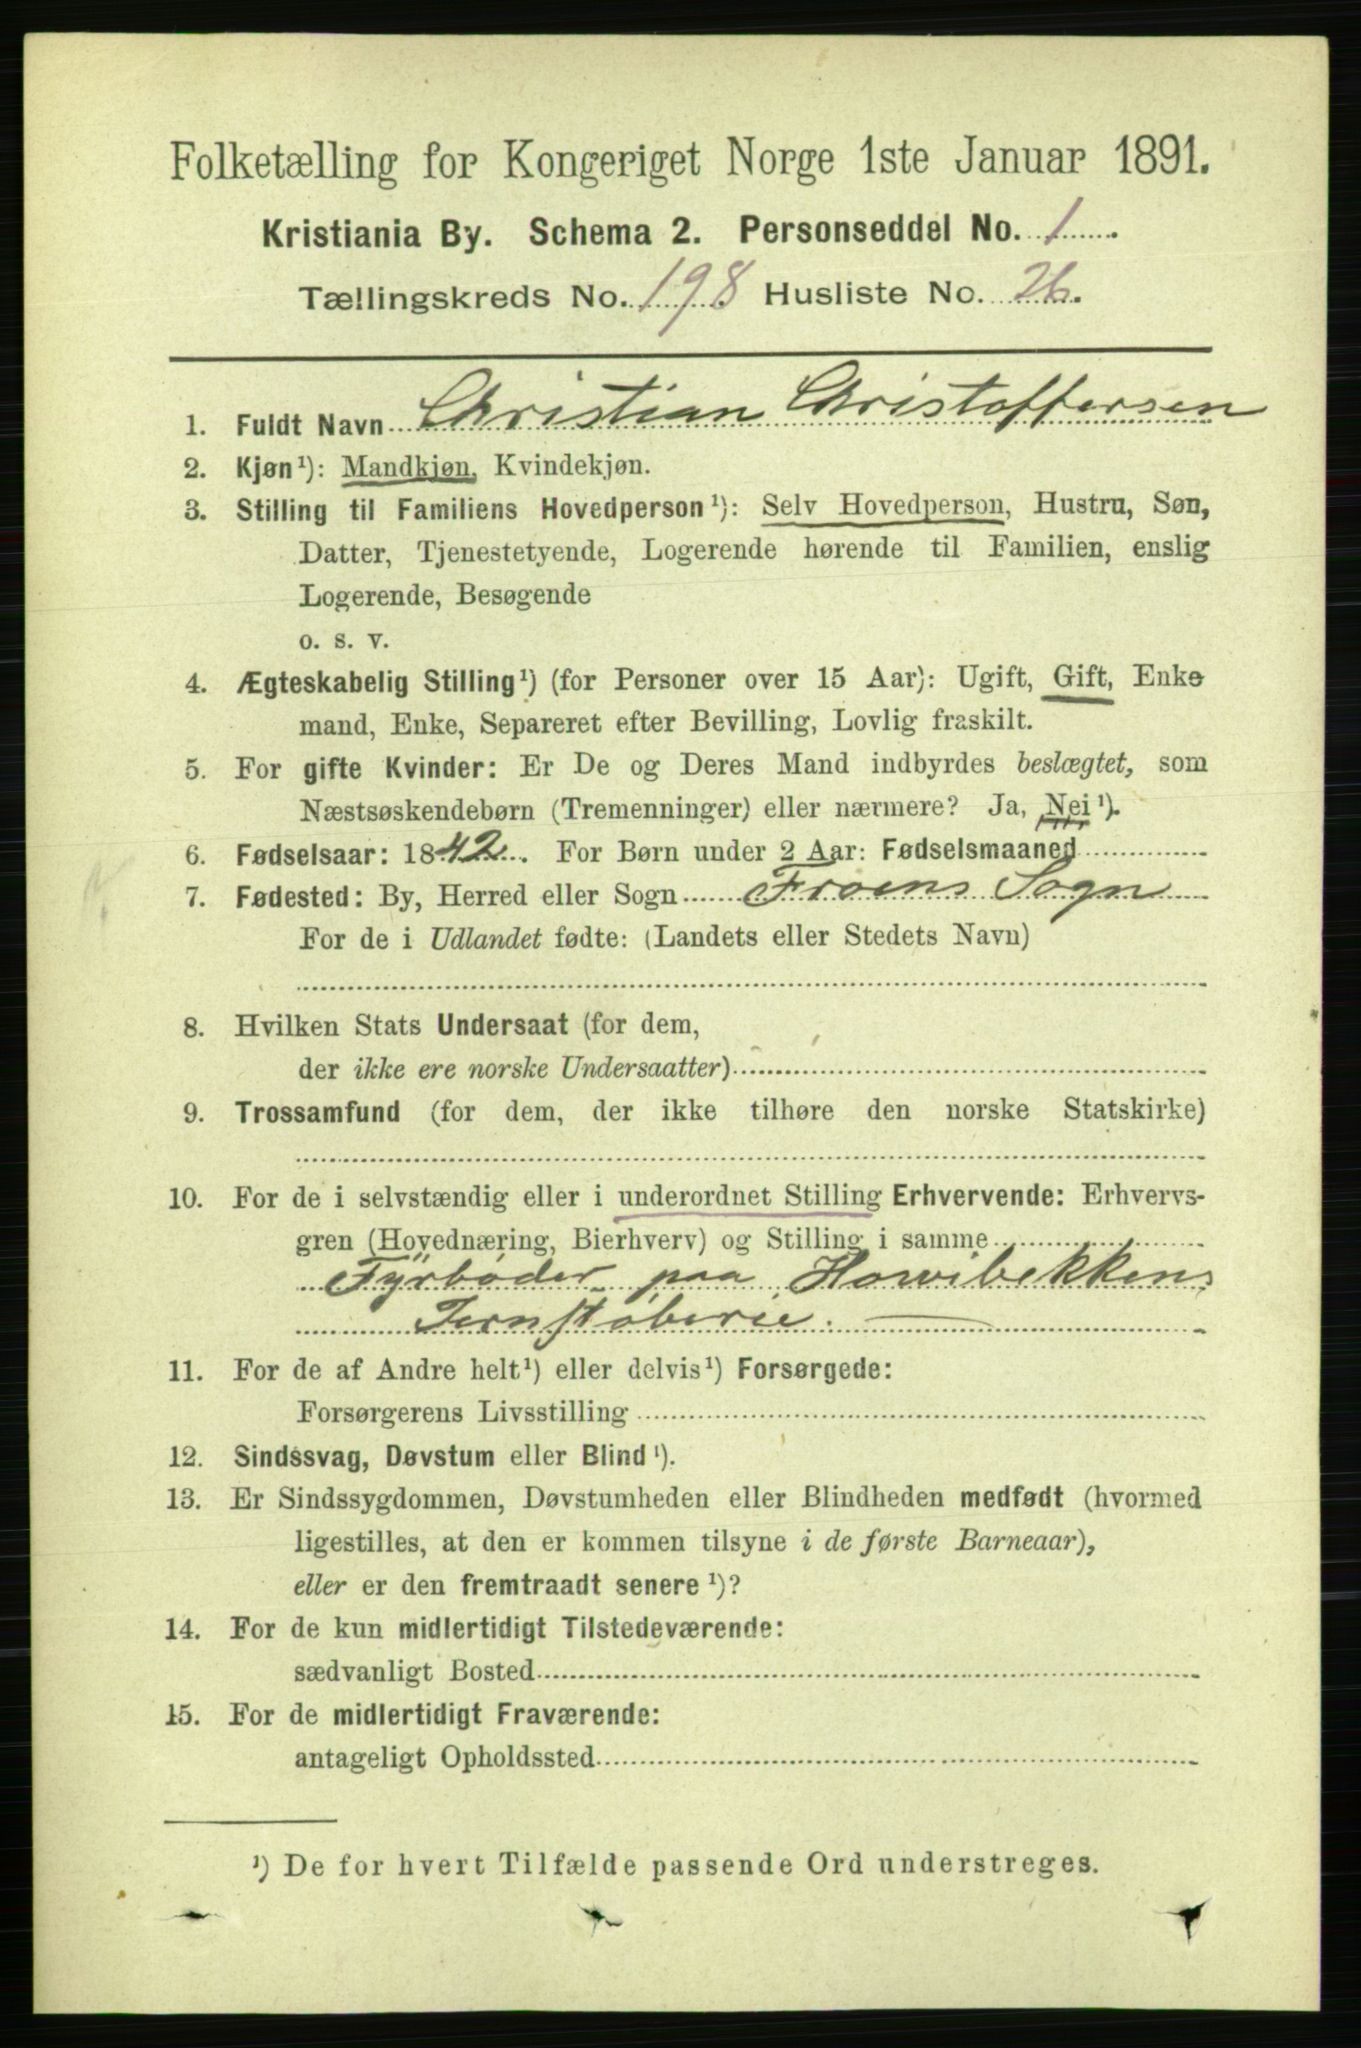 Folketælling for Kongeriget Norge 1ste Januar 1891.
Kristiania By. Schema 2. Personseddel No. 1.
Tællingskreds No. 198 Husliste No. 26.
1. Fuldt Navn Christian Christoffersen
2. Kjøn¹): Mandkjøn, Kvindekjøn.
3. Stilling til Familiens Hovedperson¹): Selv Hovedperson, Hustru, Søn,
Datter, Tjenestetyende, Logerende hørende til Familien, enslig
Logerende, Besøgende
o. s. v.
4. Ægteskabelig Stilling¹) (for Personer over 15 Aar): Ugift, Gift, Enke-
mand, Enke, Separeret efter Bevilling, Lovlig fraskilt.
5. For gifte Kvinder: Er De og Deres Mand indbyrdes beslægtet, som
Næstsøskendebørn (Tremenninger) eller nærmere? Ja, Nei¹).
6. Fødselsaar: 1842. For Børn under 2 Aar: Fødselsmaaned
7. Fødested: By, Herred eller Sogn Froens Sogn
For de i Udlandet fødte: (Landets eller Stedets Navn)
8. Hvilken Stats Undersaat (for dem,
der ikke ere norske Undersaatter)
9. Trossamfund (for dem, der ikke tilhøre den norske Statskirke)
10. For de i selvstændig eller i underordnet Stilling Erhvervende: Erhvervs-
gren (Hovednæring, Bierhverv) og Stilling i samme
Fyrbøder paa Hovibekkens
Jernstøberie.
11. For de af Andre helt¹) eller delvis¹) Forsørgede:
Forsørgerens Livsstilling
12. Sindssvag, Døvstum eller Blind¹).
13. Er Sindssygdommen, Døvstumheden eller Blindheden medfødt (hvormed
ligestilles, at den er kommen tilsyne i de første Barneaar),
eller er den fremtraadt senere¹)?
14. For de kun midlertidigt Tilstedeværende:
sædvanligt Bosted
15. For de midlertidigt Fraværende:
antageligt Opholdssted
¹) De for hvert Tilfælde passende Ord understreges.